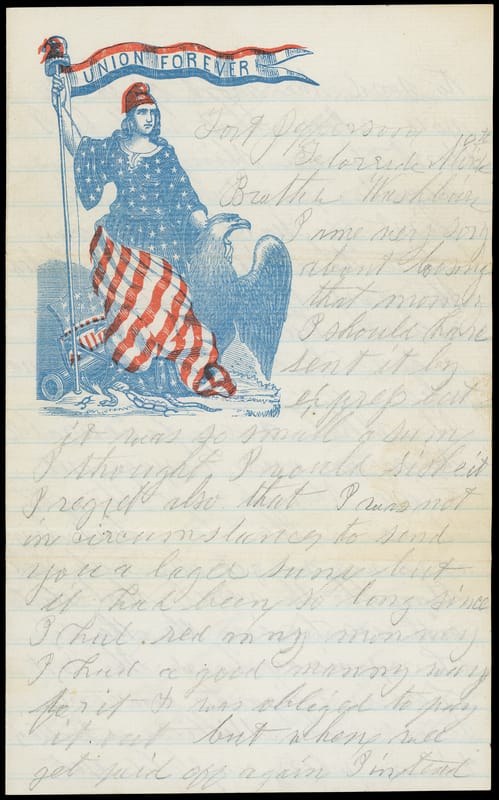 UNION FOREVER
Fort Jefferson
Floreida
Brother Washbun
I me very sory
about loosing
that monny
I should have
sent it by
express but
it was so small a sum
I thought I would risk it
I regret also that I was not
in circumstances to send
you a lager sum but
it had been so long since
I had red any monney
I had a good manny ways
for it I was obliged to pay
it out but when we
get paid off again I intend